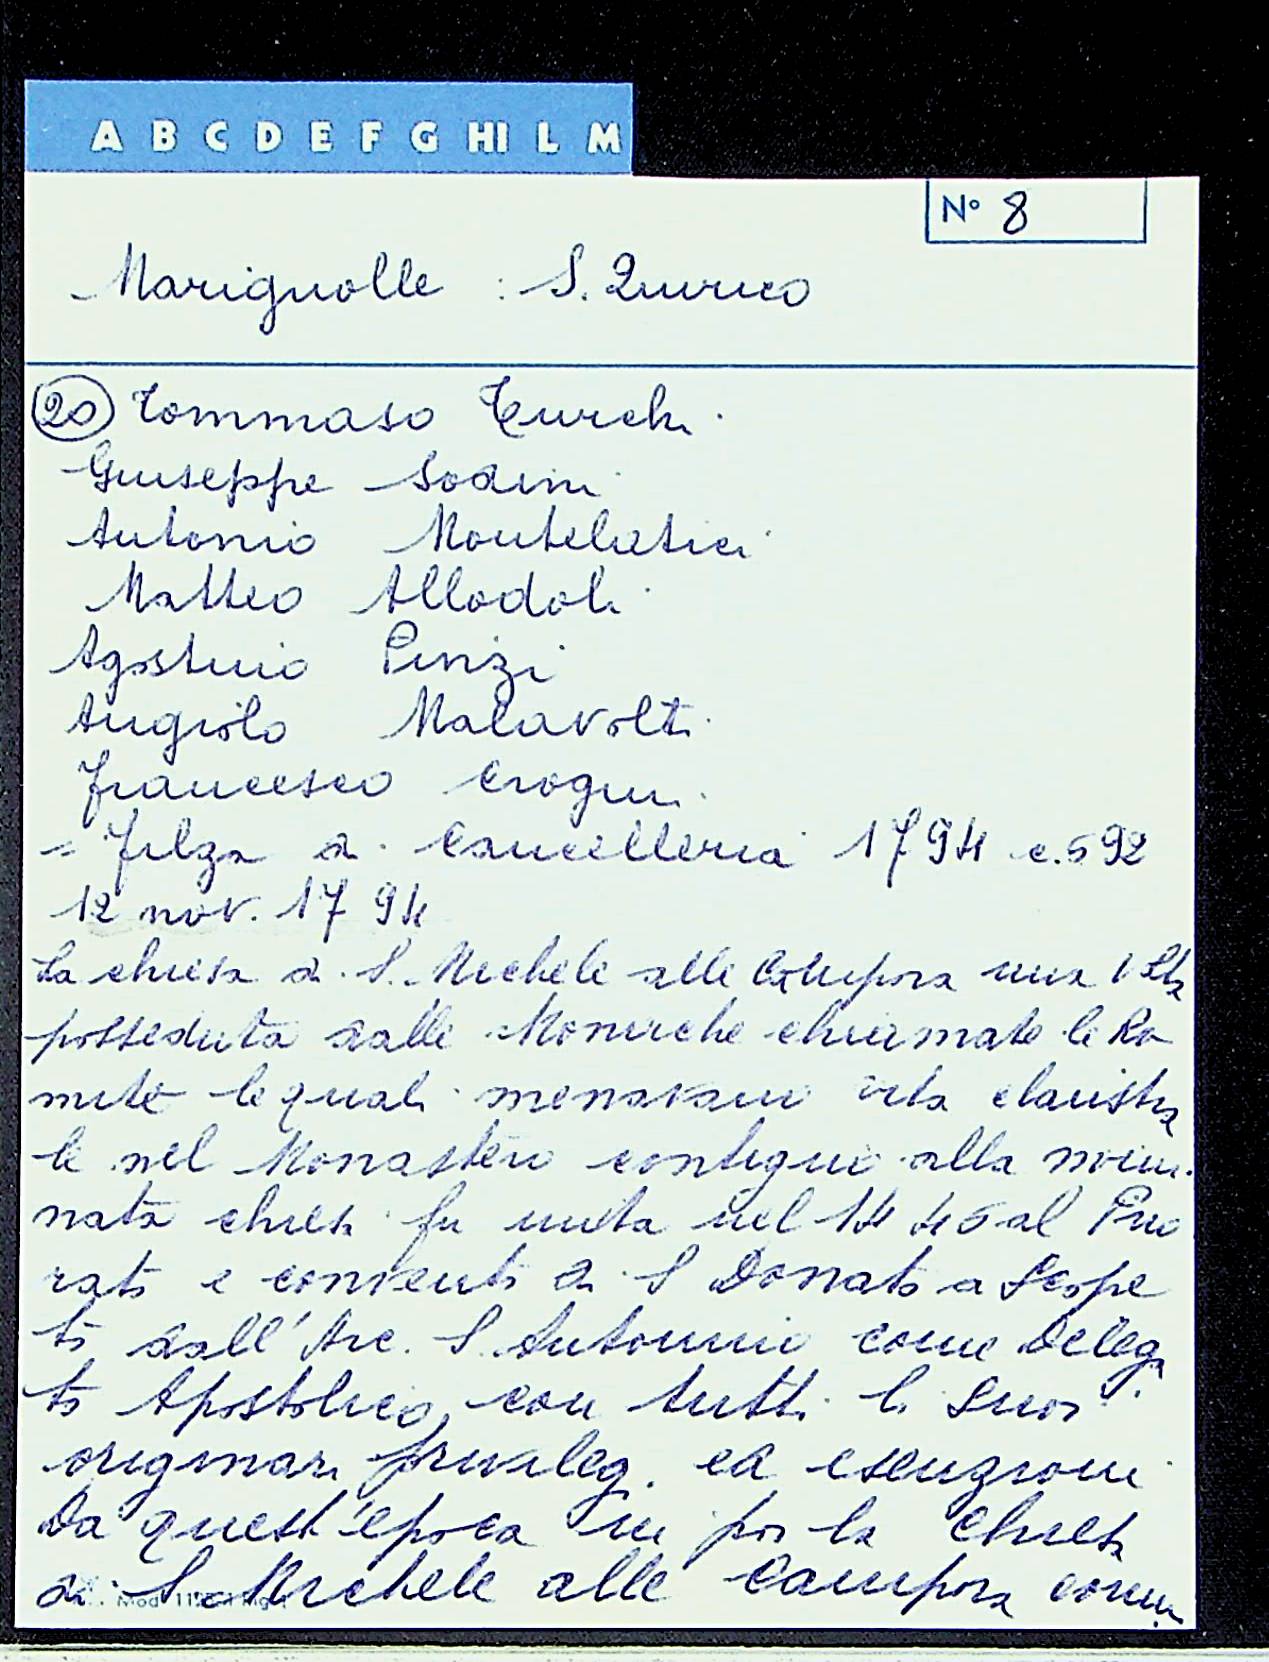 A B C D E F G HI L M
N° 8
Marignolle : S. Quirico
20 Tommaso Turchi.
Giuseppe Sodini
Antonio Montelatici
Matteo Allodoli
Agostino Pinzi
Angiolo Malavolti
Francesco Crogini.
= Filza di Cancelleria 1794 c. 592
12 nov. 1794
La chiesa di S. Michele alle Campora una volta
posseduta dalle Monache chiamate le Ro
mite le quali menavano vita claustra
le nel Monastero contiguo alla nomi-
nata chiesa fu unita nel 1446 al Prio
rato e convento di S Donato a Scope
to dall'Arc. S. Antonino come Delega
to Apostolico, con tutti li suoi
originari privileg. ed esenzioni
Da quest'epoca in poi la chiesa
di S. Michele alle Campora comin